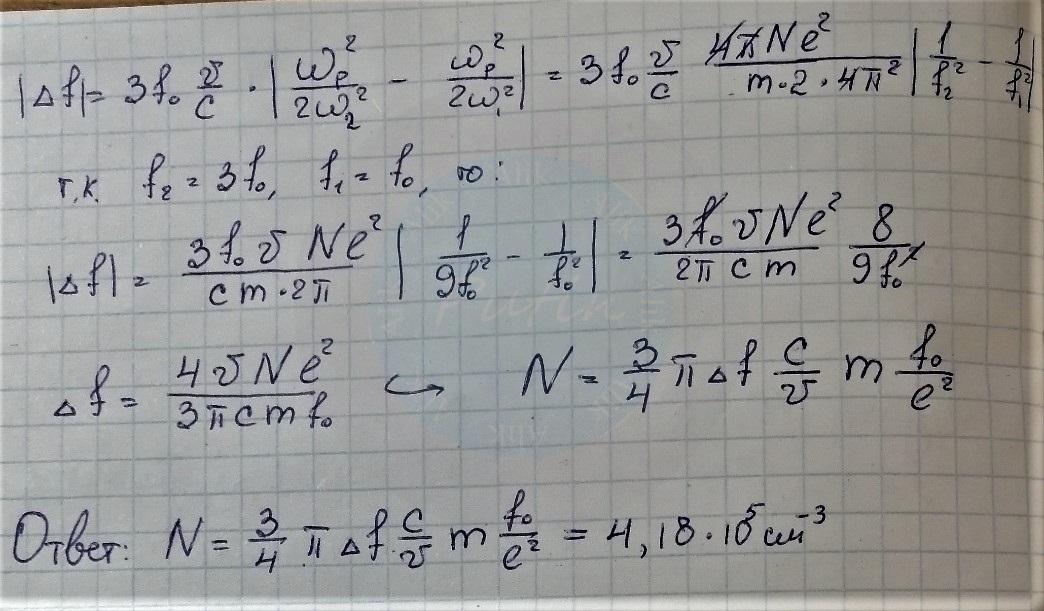 |Δf| = 3f₀ v/c · | ωₚ²/2ω₂² − ωₚ²/2ω₁² | = 3f₀ v/c 4πNe²/m·2·4π² | 1/f₂² − 1/f₁² |
т.к. f₂ = 3f₀, f₁ = f₀, то:
|Δf| = 3f₀ v Ne²/cm·2π | 1/9f₀² − 1/f₀² | = 3f₀ v Ne²/2π cm 8/9f₀²
Δf = 4vNe²/3πcmf₀ ↪ N = 3/4 π Δf c/v m f₀/e²
Ответ: N = 3/4 π Δf c/v m f₀/e² = 4,18·10⁵ см⁻³